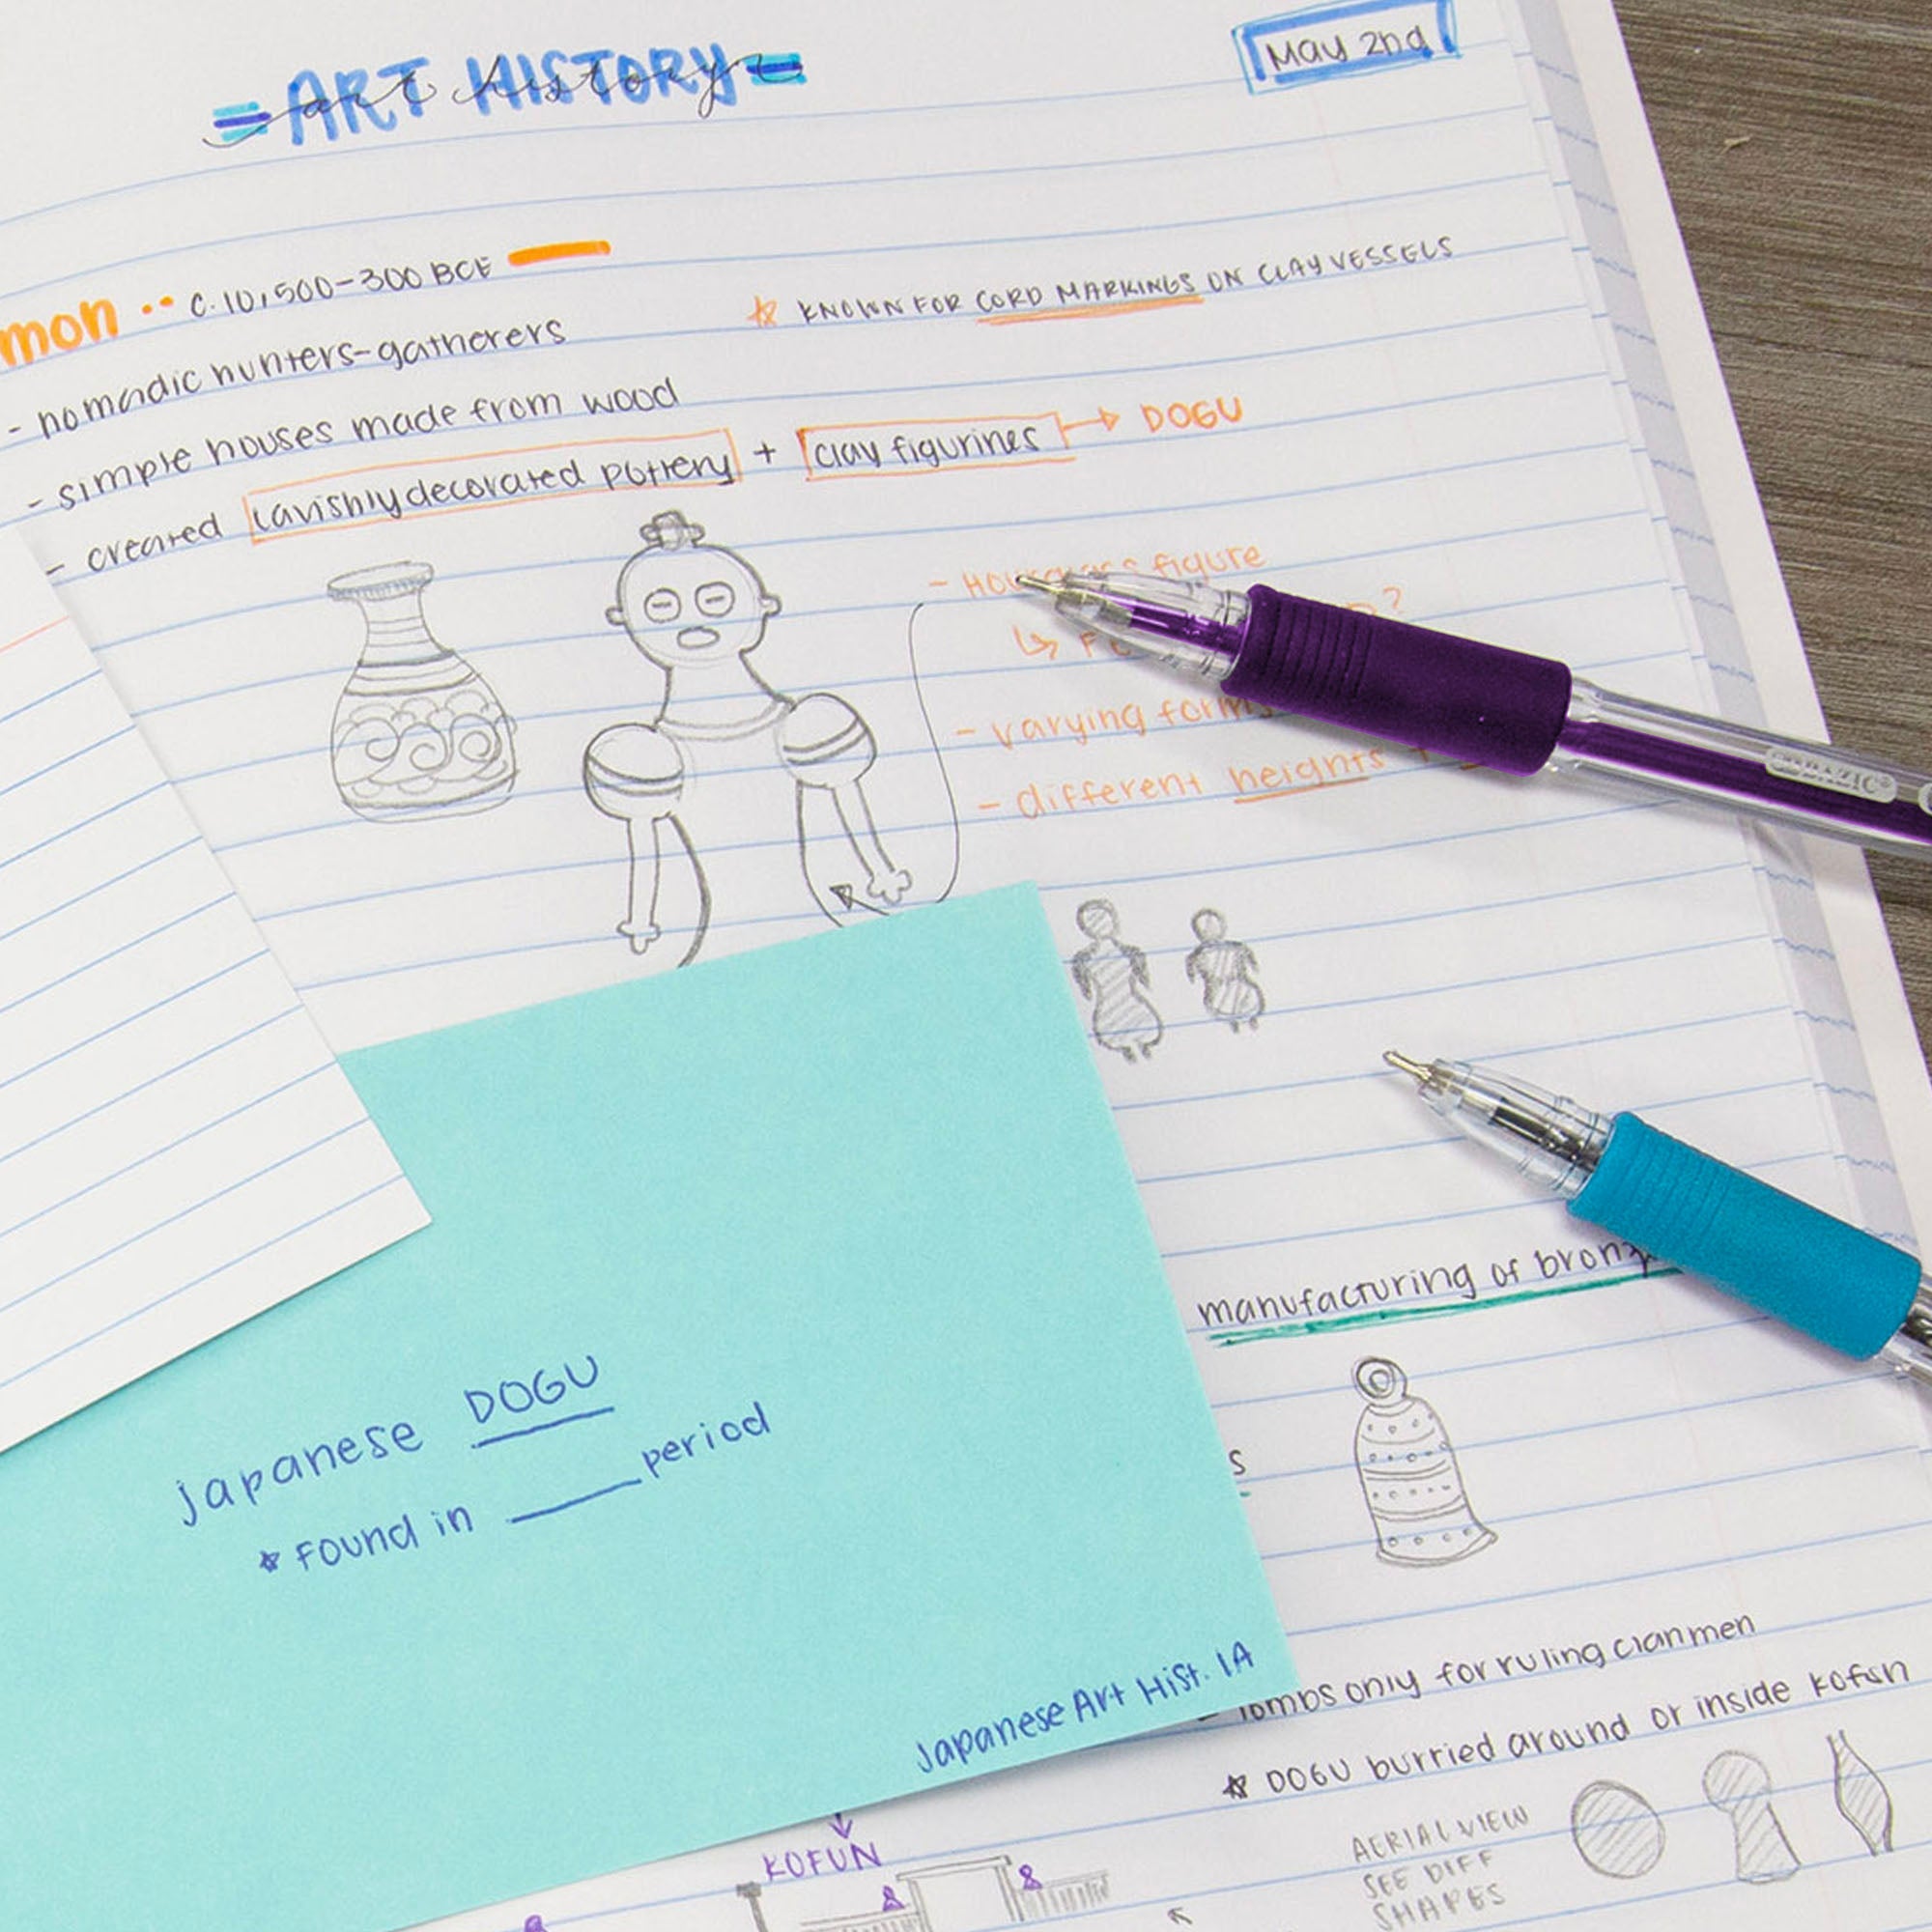 ART HISTORY
art history
May 2nd
mon •• C. 10,500-300 BCE
☆ KNOWN FOR CORD MARKINGS ON CLAY VESSELS
- nomadic hunters-gatherers
- simple houses made from wood
- created lavishly decorated pottery + clay figurines → DOGU
- Hourglass figure
?
- varying forms
- different heights +
manufacturing of bronz
s
Japanese DOGU
☆ FOUND in ____ period
Japanese Art Hist. 1A
- Tombs only for ruling clanmen
☆ DOGU burried around or inside kofun
KOFUN
AERIAL VIEW
SEE DIFF
SHAPES